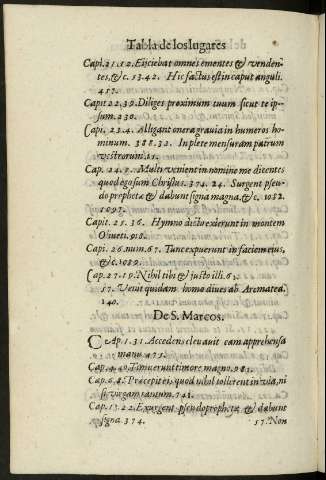 Tabla de los lugares
Capi. 21. 12. Eijciebat omnes ementes & venden-
tes, &c. 1342. Hic factus est in caput anguli.
457.
Capit 22. 39. Diliges proximum tuum sicut te ip-
sum. 230.
Capi. 23. 4. Alligant onera gravia in humeros ho-
minum. 388. 32. Implete mensuram patrum
vestrorum.
Cap. 24. 5. Multi venient in nomine meo dicentes
quod ego sum Christus. 374. 24. Surgent pseu-
do prophetæ & dabunt signa magna, &c. 1032.
1097.
Capit. 25. 36. Hymno dicto exierunt in montem
Oliueti. 918.
Capi. 26. num. 67. Tunc expuerunt in faciem eius,
&c. 1039.
Cap. 27. 19. Nihil tibi & justo illi. 63.
57. Venit quidam homo diues ab Arimatea.
140.
De S. Marcos.
CAp. 1. 31. Accedens eleuauit eam apprehensa
manu. 475.
Cap. 4. 40. Timuerunt timore magno. 983.
Cap. 6. 8. Præcepit eis, quod nihil tollerent in via, ni
si virgam tantum. 743.
Cap. 13. 22. Exurgent pseudoprophetæ & dabunt
signa. 374.
57. Non